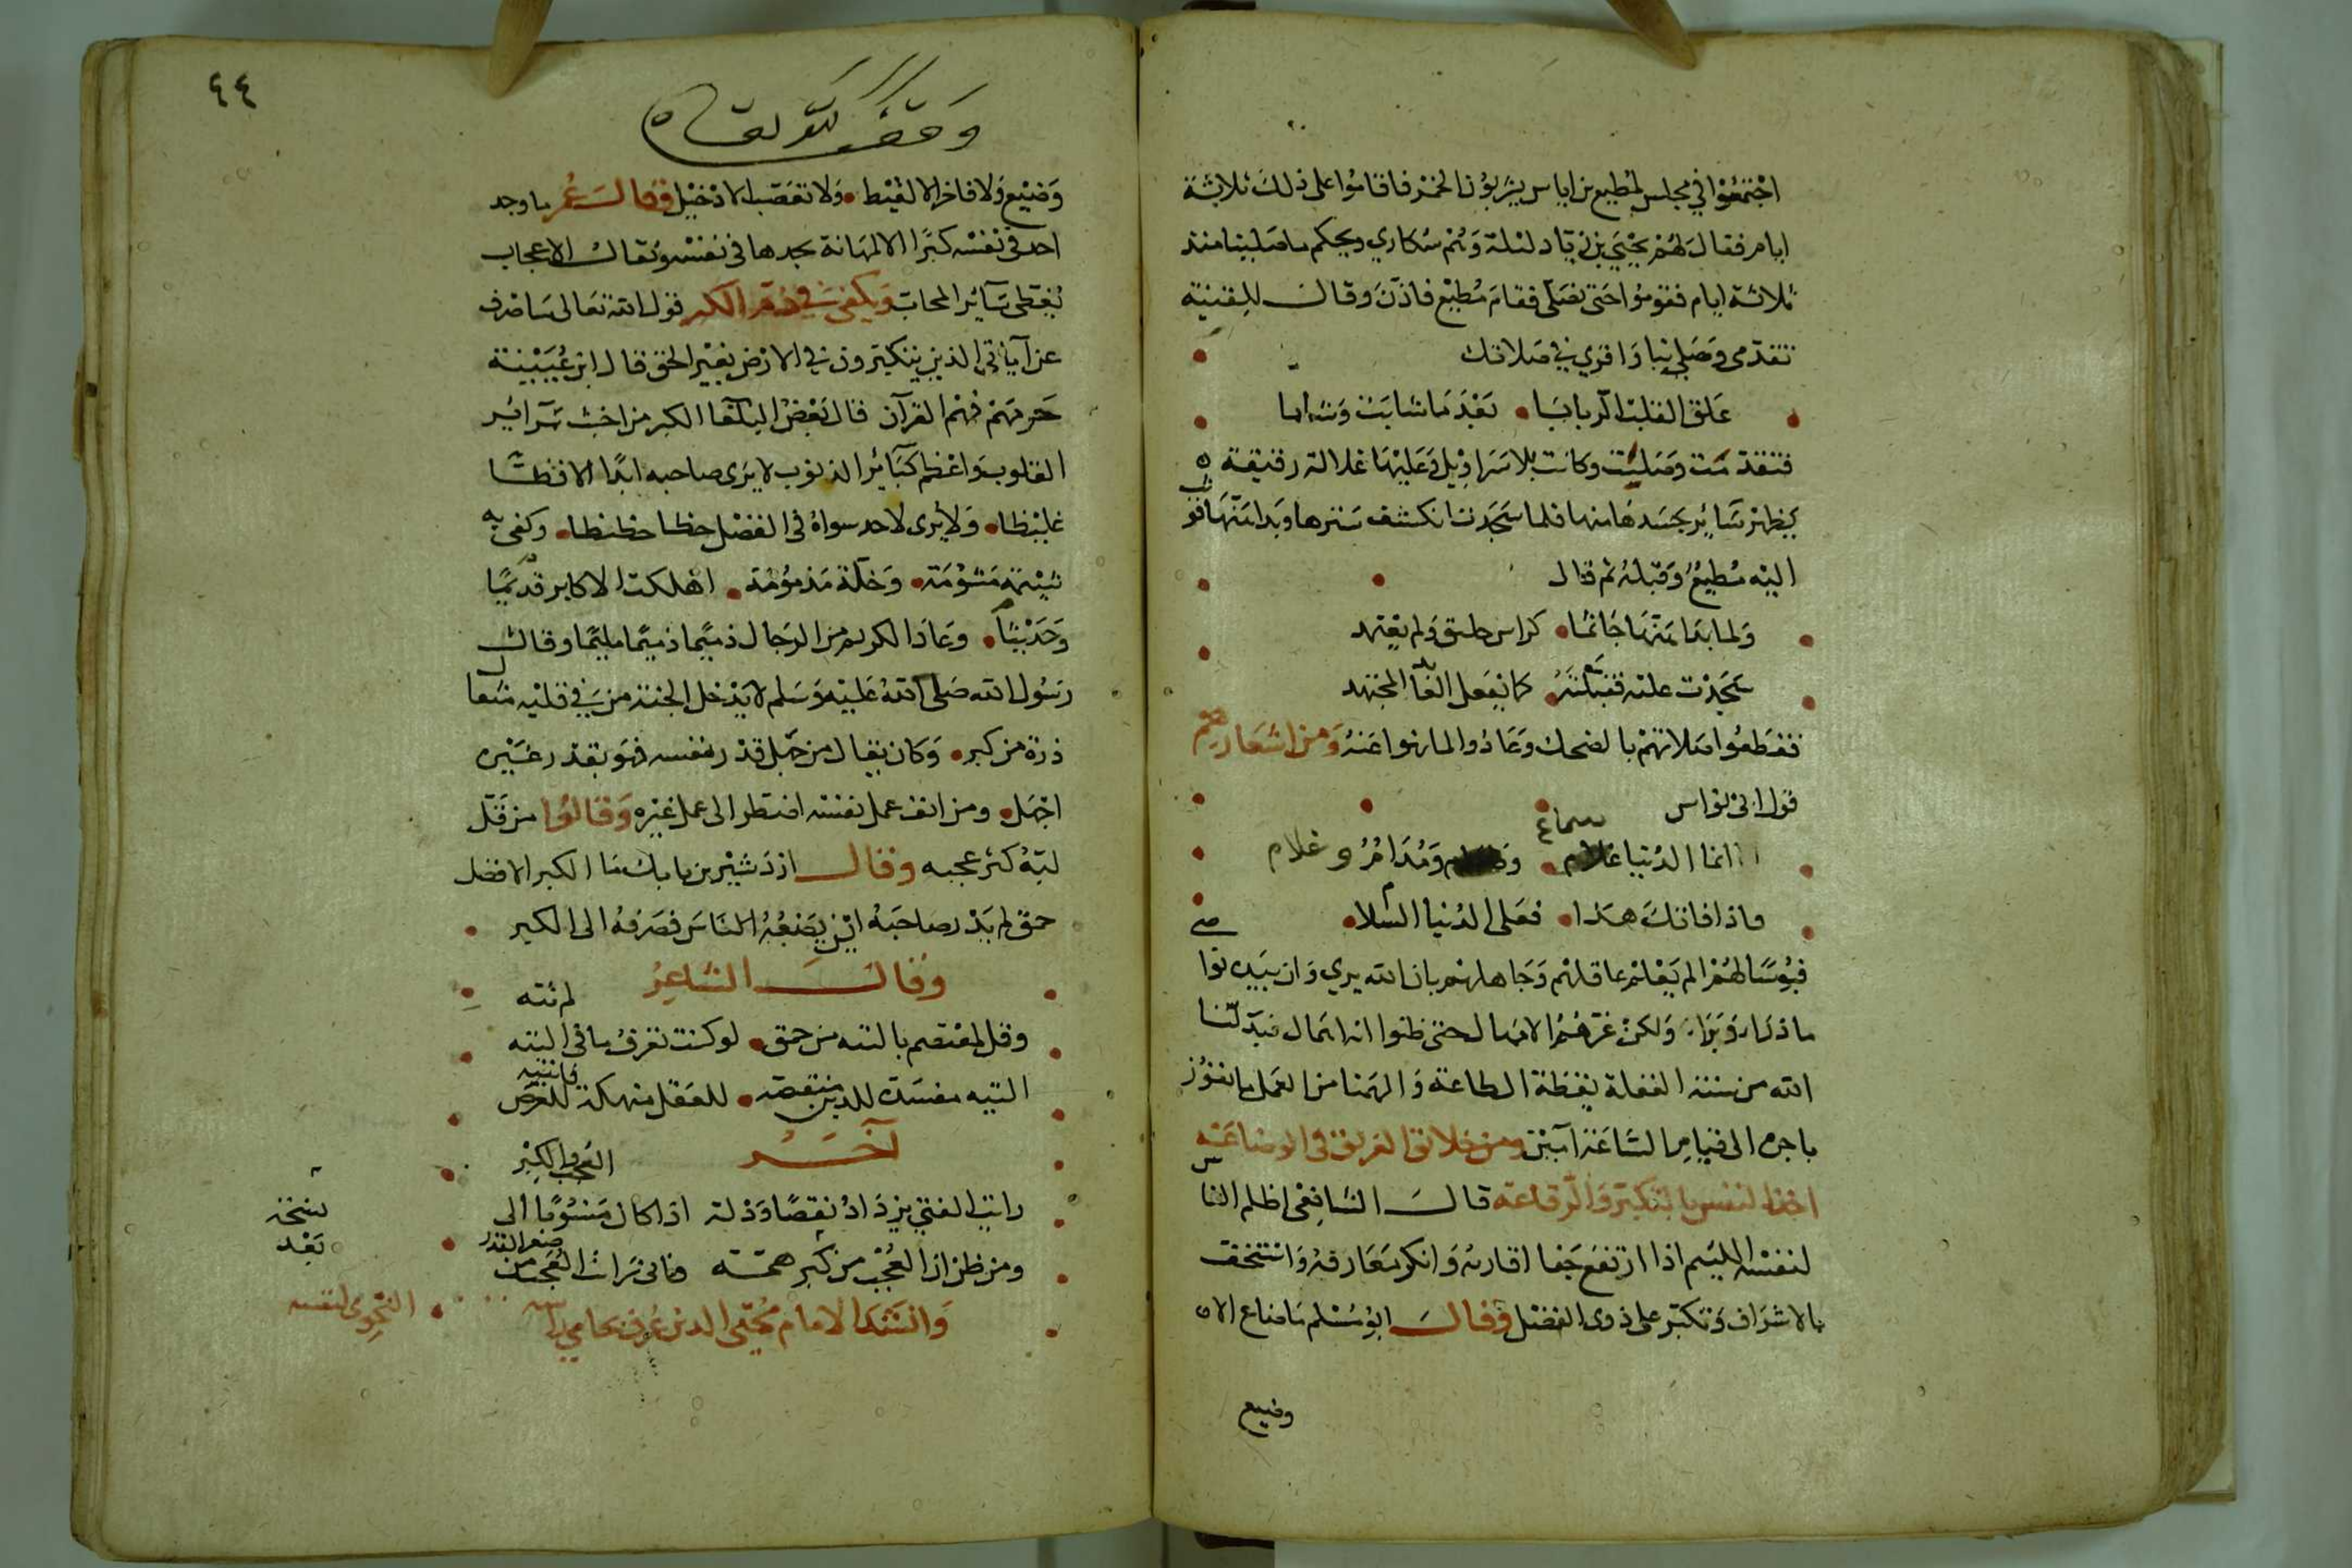 اجتمعوا في مجلس لمطيع بن اياس يشربون الخمر فاقاموا على ذلك ثلاثة
ايام فقال لهم يحيى بن زياد ليلة وهم سكارى ويحكم ما صلينا منذ
ثلاثة ايام فقوموا حتى نصلى فقام مطيع فاذن وقال للقينة
تقدمى وصلى بنا واقري في صلاتك
علق القلب الربابا • بعد ما شابت وشابا
فتقدمت وصليت وكانت بلا سراويل وعليها غلالة رقيقة
يظهر سائر جسدها منها فلما سجدت انكشف سترها وبدا متنها فوثب
اليه مطيع وقبله ثم قال
ولما بدا متنها جاثما • كراس حليق ولم يعتمد
سجدت عليه فقبلته • كما يفعل العابد المجتهد
فقطعوا صلاتهم بالضحك وعادوا لما نهوا عنه ومن اشعارهم
قول ابى نواس
انما الدنيا سماع • ومدام وغلام
فاذا فاتك هذا • فعلى الدنيا السلام
فبؤسا لهم الم يعلم عاقلهم وجاهلهم بان الله يرى وان
ولكن غرهم الامهال حتى ظنوا انه اهمال
الله من سنة الغفلة يقظة الطاعة والهمنا من العمل ما نفوز
باجره الى قيام الساعة آمين ومن خلائق العريق في الوضاعة
اخذ النفس بالتكبر والرقاعة قال الشافعى اظلم الناس
لنفسه اللئيم اذا ارتفع جفا اقاربه وانكر معارفه واستخف
بالاشراف وتكبر على ذوى الفضل وقال ابو مسلم ما ضاع الا
وضيع
٤٤
وقف لله تعالى
وضيع ولا فاخر الا لقيط • ولا تعصب الا دخيل وقال عمر ما وجد
احد في نفسه كبرا الا لمهانة يجدها في نفسه ويقال الاعجاب
يغطى سائر المحاسن ويكفى في ذم الكبر قول الله تعالى ساصرف
عن آياتي الذين يتكبرون في الارض بغير الحق قال ابن عيينة
حرمهم فهم القرآن قال بعض البلغا الكبر من اخبث سرائر
القلوب واعظم كبائر الذنوب لا يرى صاحبه ابدا الا فظا
غليظا • ولا يرى لاحد سواه في الفضل حظا حظيظا • وكفى به
شيمة مشومة • وخلة مذمومة • اهلكت الاكابر قديما
وحديثا • وعاد الكريم من الرجال ذميما وقال
رسول الله صلى الله عليه وسلم لا يدخل الجنة من في قلبه مثقال
ذرة من كبر • وكان يقال من جهل قدر نفسه فهو بقدر غيره
اجهل • ومن انف عمل نفسه اضطر الى عمل غيره وقالوا من قل
لبه كثر عجبه وقال اردشير بن بابك ما الكبر الا فضل
حمق لم يدر صاحبه اين يضعه فصرفه الى الكبر
وقال الشاعر
وقل لمعتصم بالتيه من حمق • لو كنت تعرف ما في التيه لم تته
التيه مفسدة للدين منقصة • للعقل منهكة للعرض فانتبه
آخر
رايت الفتى يزداد نقصا وذلة اذا كان منسوبا الى العجب والكبر
ومن ظن ان العجب من كبر همته فانى رايت العجب من صغر القدر
وانشد الامام محيى الدين عرف بحامي راسه
النحوى لنفسه
نسخة
بعد